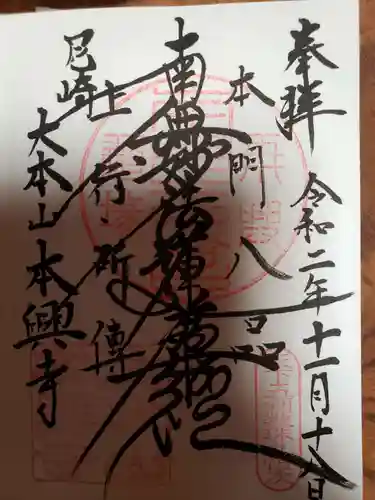 奉拝
令和二年十一月十八日
本門八品
南無妙法蓮華経
上行所傳
尼崎
大本山本興寺